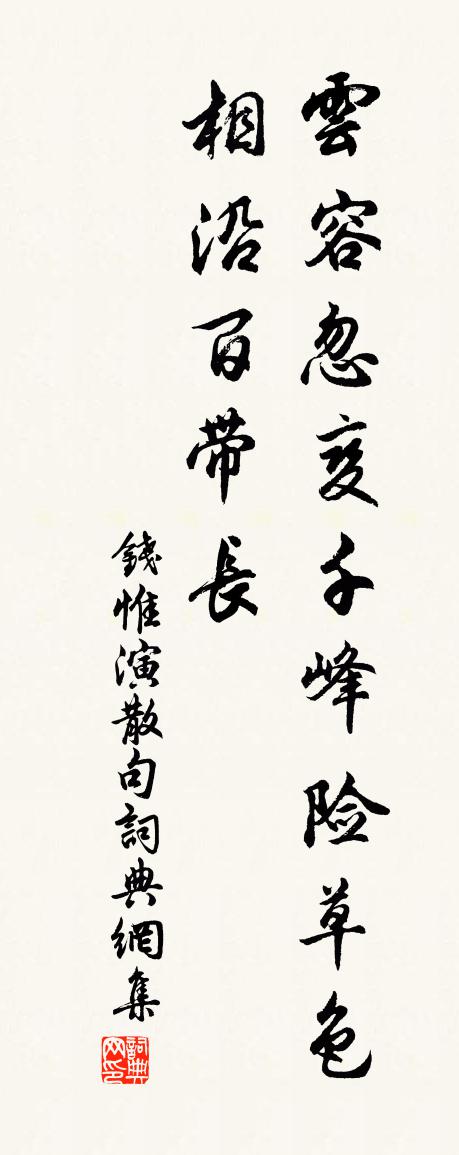 雲容忽变千峰险草色
相沿百带長
錢惟演散句詞典網集
詞典网印